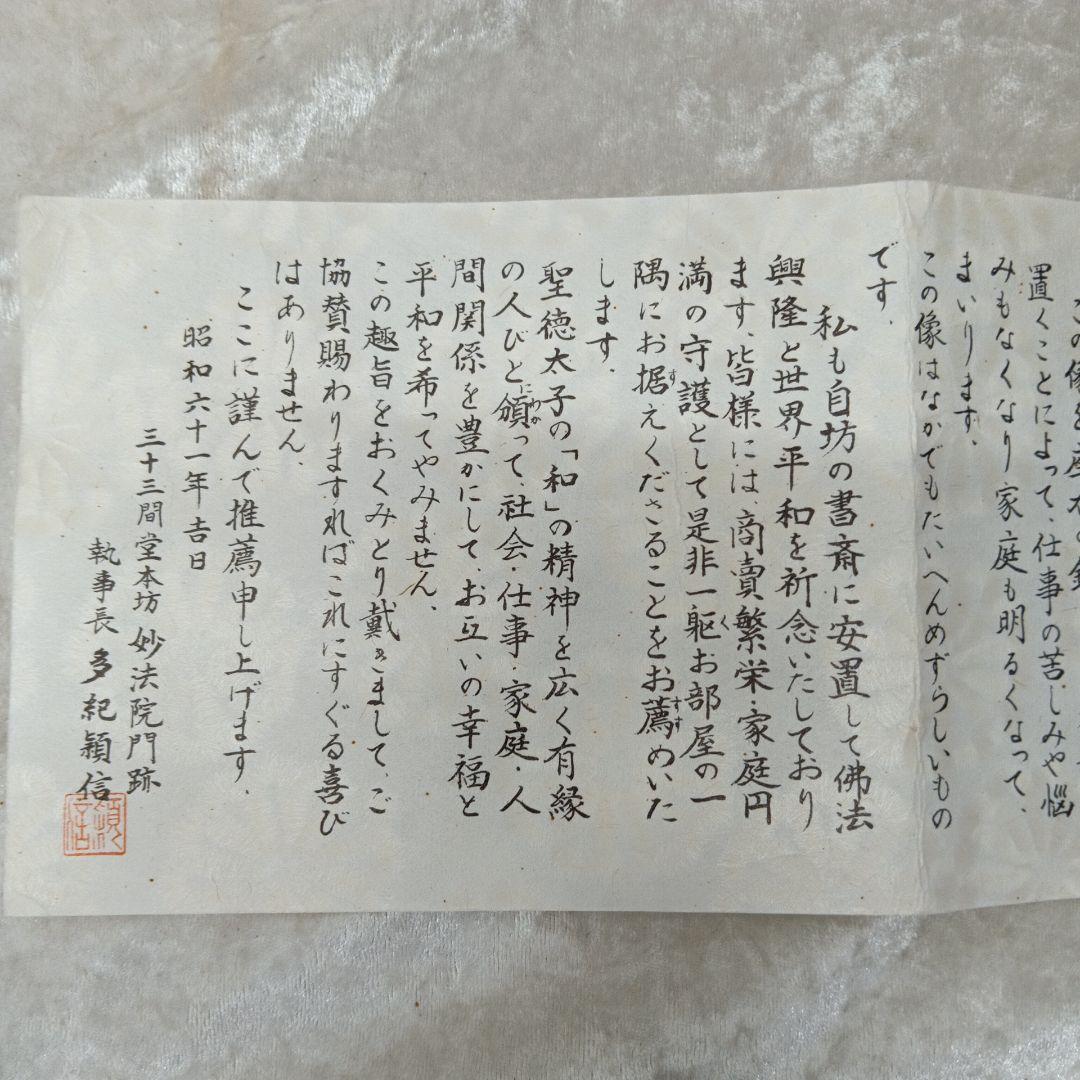 この像を座右の
置くことによって、仕事の苦しみや悩
みもなくなり家庭も明るくなって、
まいります。
この像はなかでもたいへんめずらしいもの
です。
私も自坊の書斎に安置して佛法
興隆と世界平和を祈念いたしており
ます。皆様には、商賣繁栄・家庭円
満の守護として是非一躯お部屋の一
隅にお据えくださることをお薦めいた
します。
聖徳太子の「和」の精神を広く有縁
の人びと頒って、社会・仕事・家庭・人
間関係を豊かにして、お互いの幸福と
平和を希ってやみません、
この趣旨をおくみとり戴きまして、ご
協賛賜わりますればこれにすぐる喜び
はありません、
ここに謹んで推薦申し上げます、
昭和六十一年吉日
三十三間堂本坊 妙法院門跡
執事長 多紀穎信